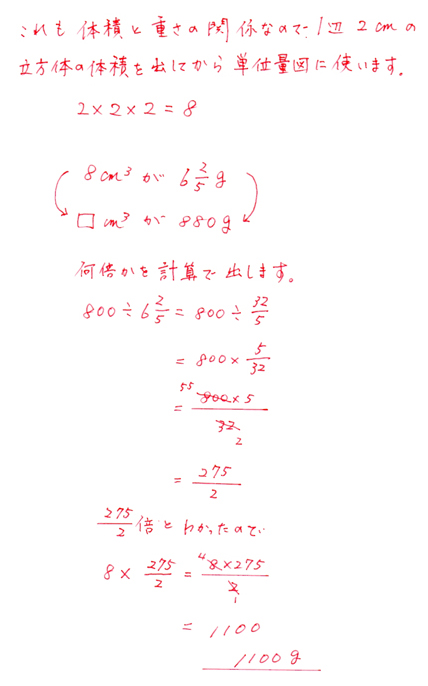 これも体積と重さの関係なので1辺2cmの
立方体の体積を出してから単位量図に使います。
2×2×2=8
8cm³が 6 2/5 g
□cm³が 880g
何倍かを計算で出します。
800÷6 2/5=800÷32/5
=800×5/32
=55 800×5/32 2
=275/2
275/2倍とわかったので
8×275/2=4 8×275/2 1
=1100
1100g